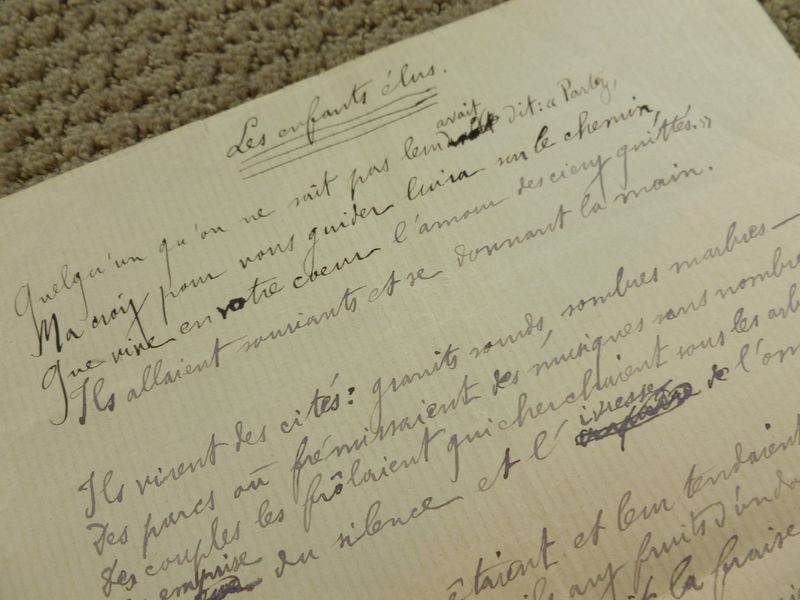 Les enfants élus.
Quelqu'un qu'on ne sait pas leur avait dit : « Partez,
Ma croix pour vous guider luira sur le chemin,
Que vive en votre coeur l'amour des cieux quittés. »
Ils allaient souriants et se donnant la main.
Ils virent des cités : granits sourds, sombres marbres —
Des parcs où frémissaient des musiques sans nombre
Des couples les frôlaient qui cherchaient sous les
emprise du silence et l'ivresse de
étaient et leur tendaient
aux fruits
la fraise